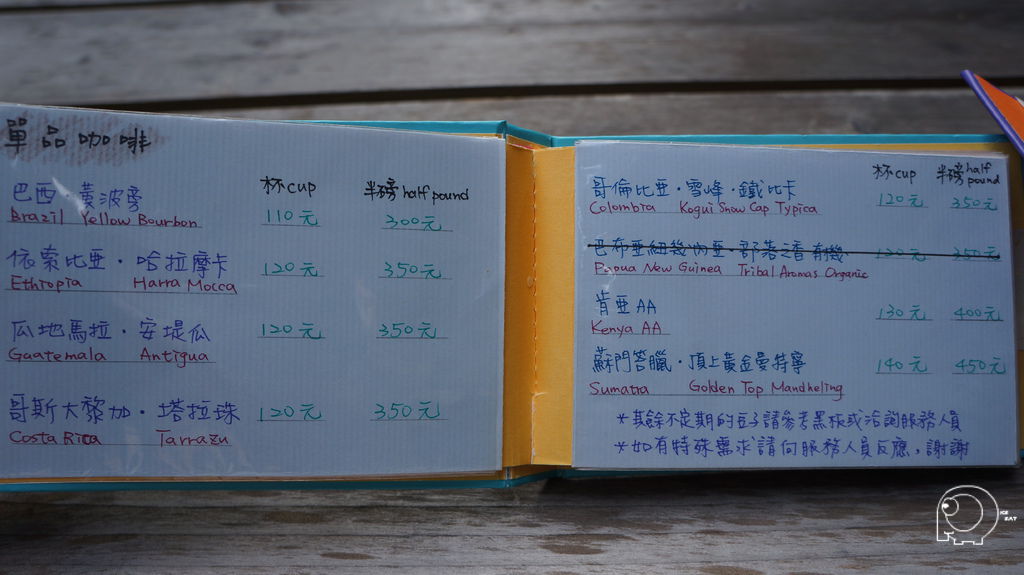 單品咖啡
杯cup 半磅half pound
巴西·黃波旁
Brazil Yellow Bourbon 110元 300元
依索比亞·哈拉摩卡
Ethiopia Harra Mocca 120元 350元
瓜地馬拉·安堤瓜 120元 350元
Guatemala Antigua
哥斯大黎加·塔拉珠 120元 350元
Costa Rica Tarrazu
杯cup 半磅half pound
哥倫比亞·雪峰·鐵比卡 120元 350元
Colombia Kogui Snow Cap Typica
巴布亞紐幾內亞·部落之香有機 120元 350元
Papua New Guinea Tribal Aromas Organic
肯亞AA 130元 400元
Kenya AA
蘇門答臘·頂上黃金曼特寧 140元 450元
Sumatra Golden Top Mandheling
*其餘不定期的豆子請參考黑板或洽詢服務人員
*如有特殊需求請向服務人員反應,謝謝
ICE
EAT